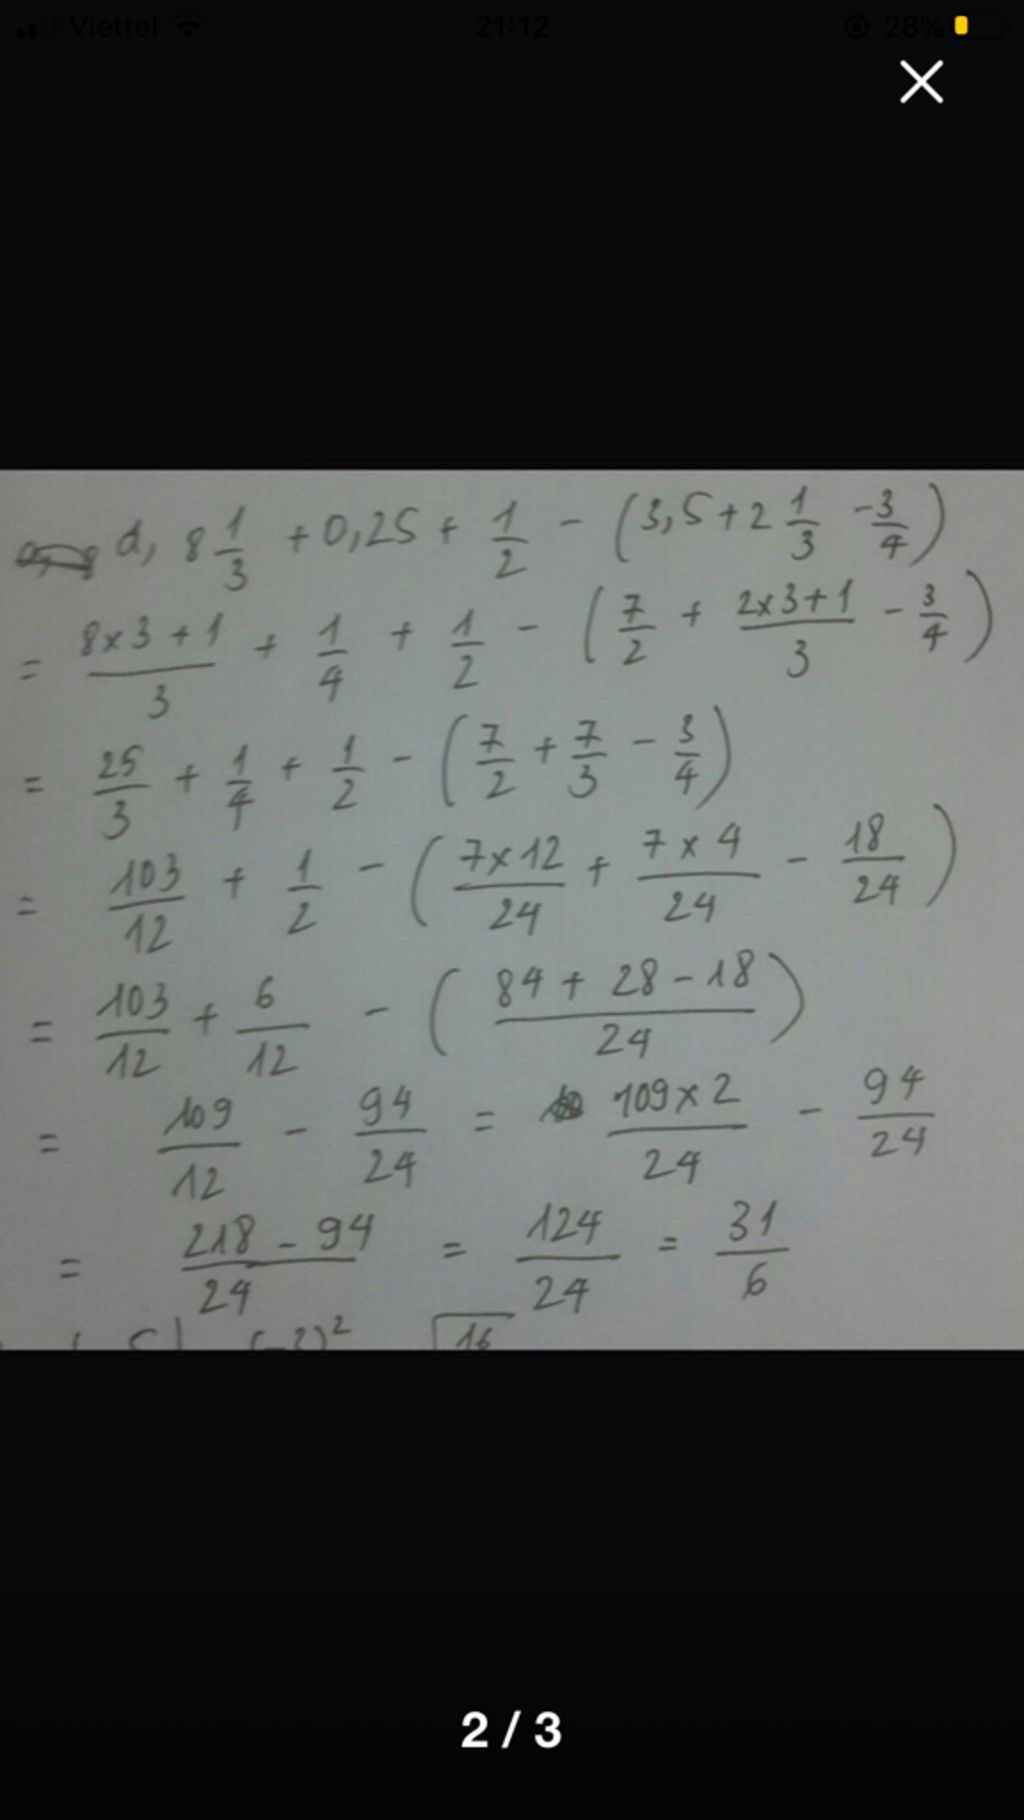 Viettel 21:12 28%
d, 8 1/3 + 0,25 + 1/2 - (3,5 + 2 1/3 - 3/4)
= (8×3+1)/3 + 1/4 + 1/2 - (7/2 + (2×3+1)/3 - 3/4)
= 25/3 + 1/4 + 1/2 - (7/2 + 7/3 - 3/4)
= 103/12 + 1/2 - ((7×12)/24 + (7×4)/24 - 18/24)
= 103/12 + 6/12 - ((84 + 28 - 18)/24)
= 109/12 - 94/24 = (109×2)/24 - 94/24
= (218 - 94)/24 = 124/24 = 31/6
2 / 3